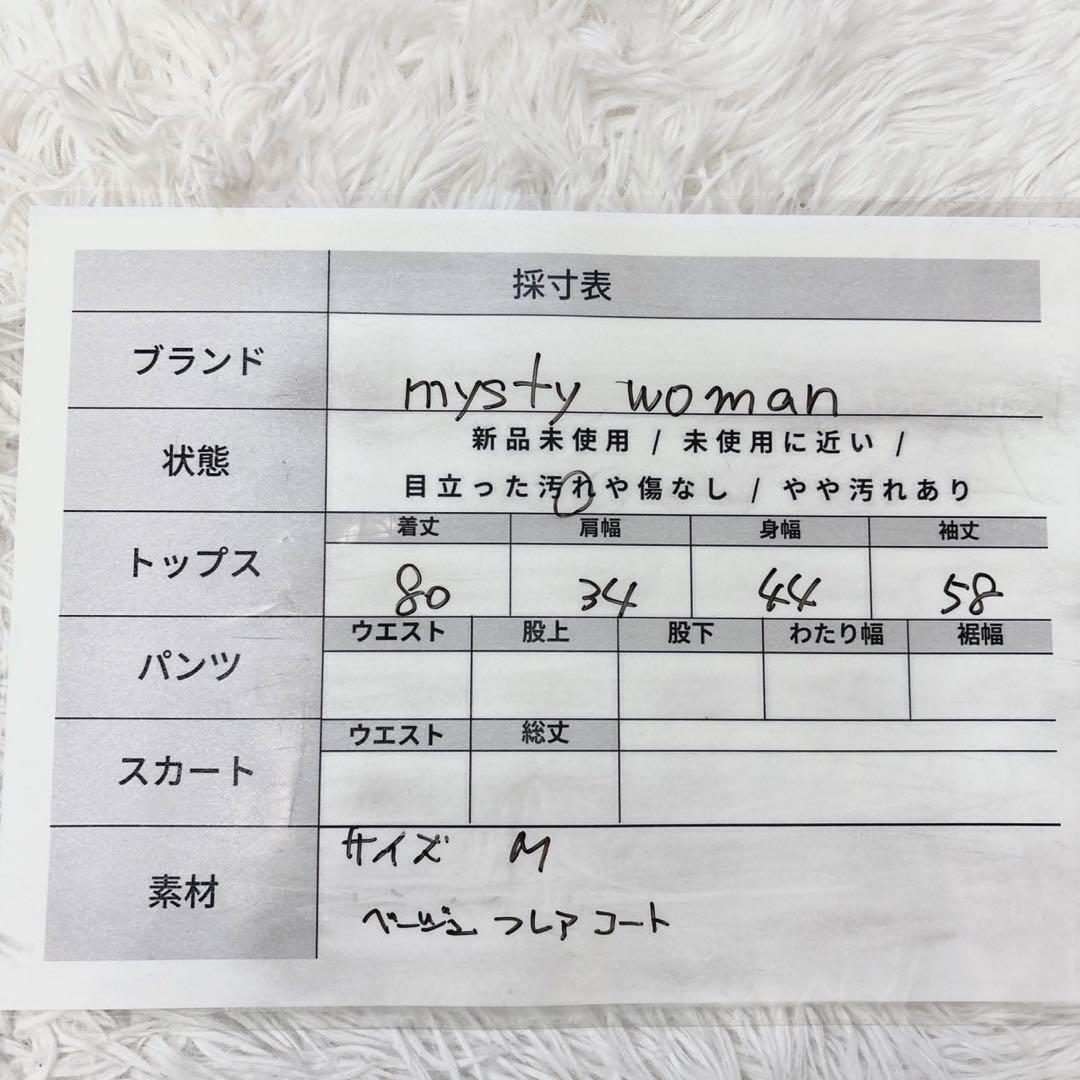 採寸表
ブランド
mysty woman
状態
新品未使用 / 未使用に近い /
目立った汚れや傷なし / やや汚れあり
トップス
着丈 肩幅 身幅 袖丈
80 34 44 58
パンツ
ウエスト 股上 股下 わたり幅 裾幅
スカート
ウエスト 総丈
素材
サイズ M
ベージュ フレア コート